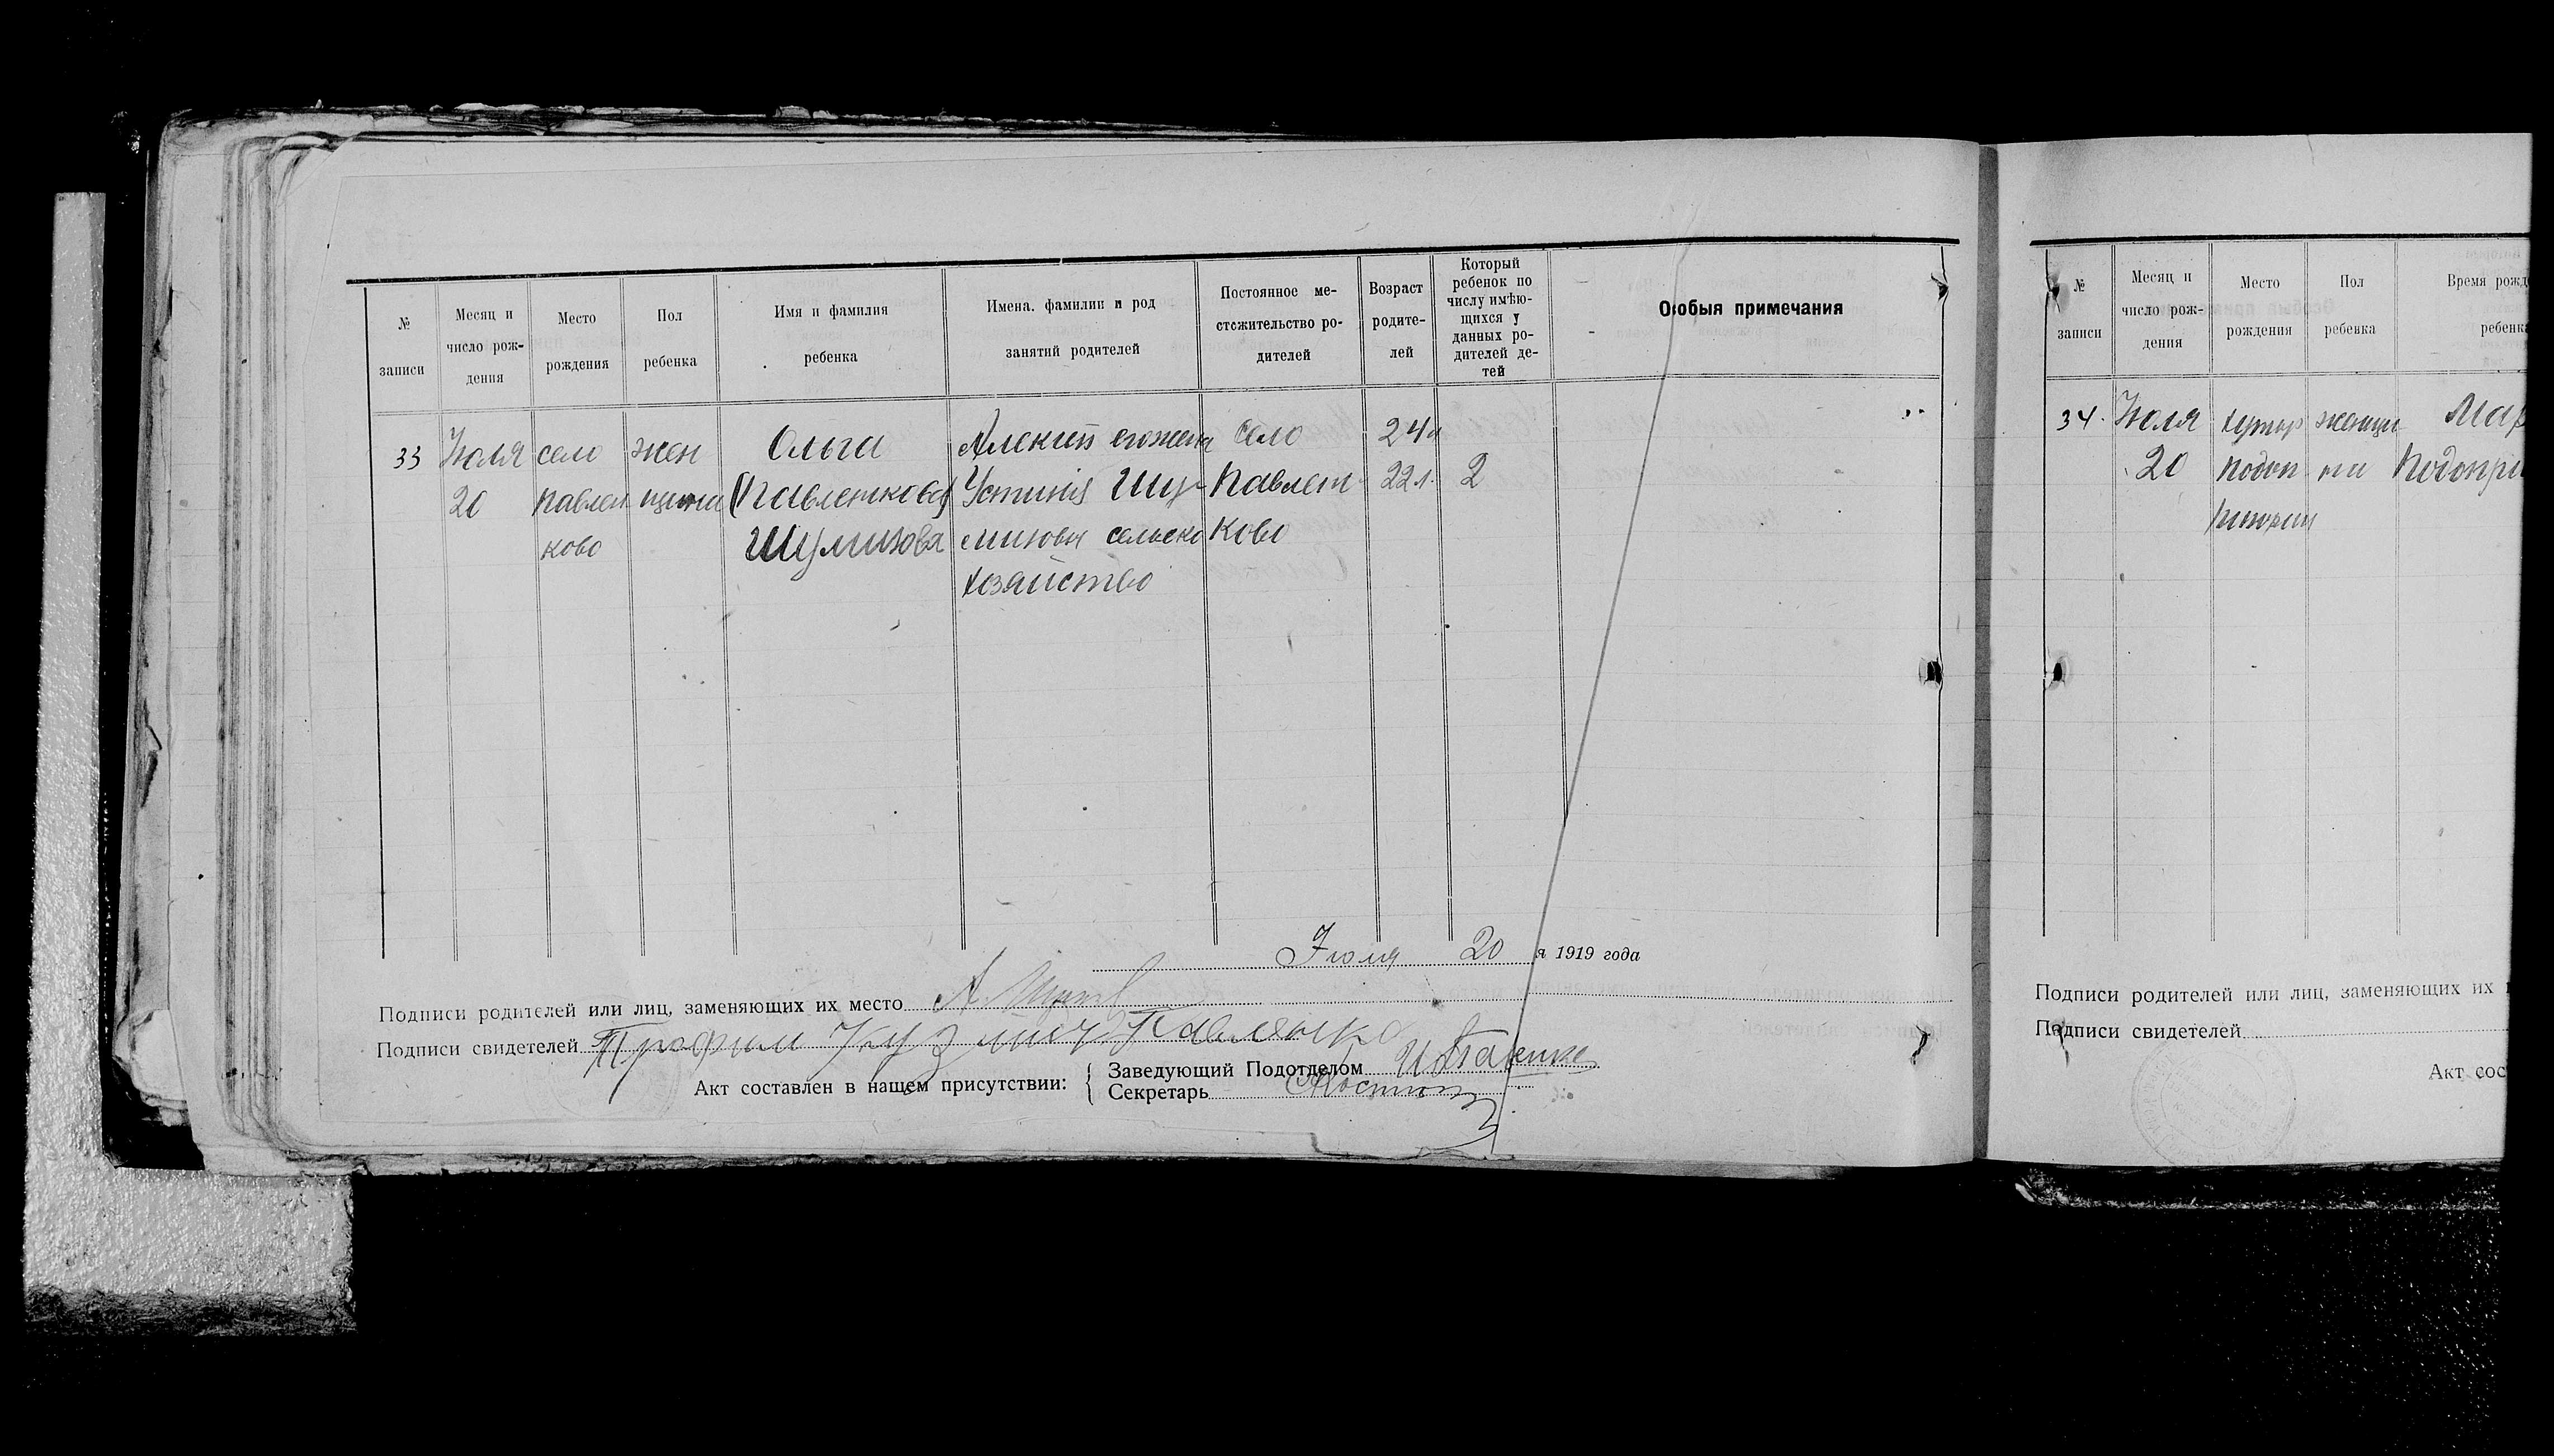 № записи
Месяц и число рож- дения
Место рождения
Пол ребенка
Имя и фамилия ребенка
Имена, фамилии и род занятий родителей
Постоянное ме- стожительство ро- дителей
Возраст родите- лей
Который ребенок по числу имѣю- щихся у данных ро- дителей де- тей
Особыя примечания
33 Июля село жен Ольга Алексий его жена село 24 л
20 Павлен щина (Павленкова) Устиния Шу- Павлен 22 л. 2
ково Шумизова мизовы сельско ково
хозяйство
Июля 20 я 1919 года
Подписи родителей или лиц, заменяющих их место А.
Подписи свидетелей Трофим Кузмич Павленко
Акт составлен в нашем присутствии:
Заведующий Подотделом
Секретарь
№ записи
Месяц и число рож- дения
Место рождения
Пол ребенка
Время рожд
ребенк
34. Июля хутор женщи Мар
20 Подоп на Подопри
Подписи родителей или лиц, заменяющих их
Подписи свидетелей
Акт сос